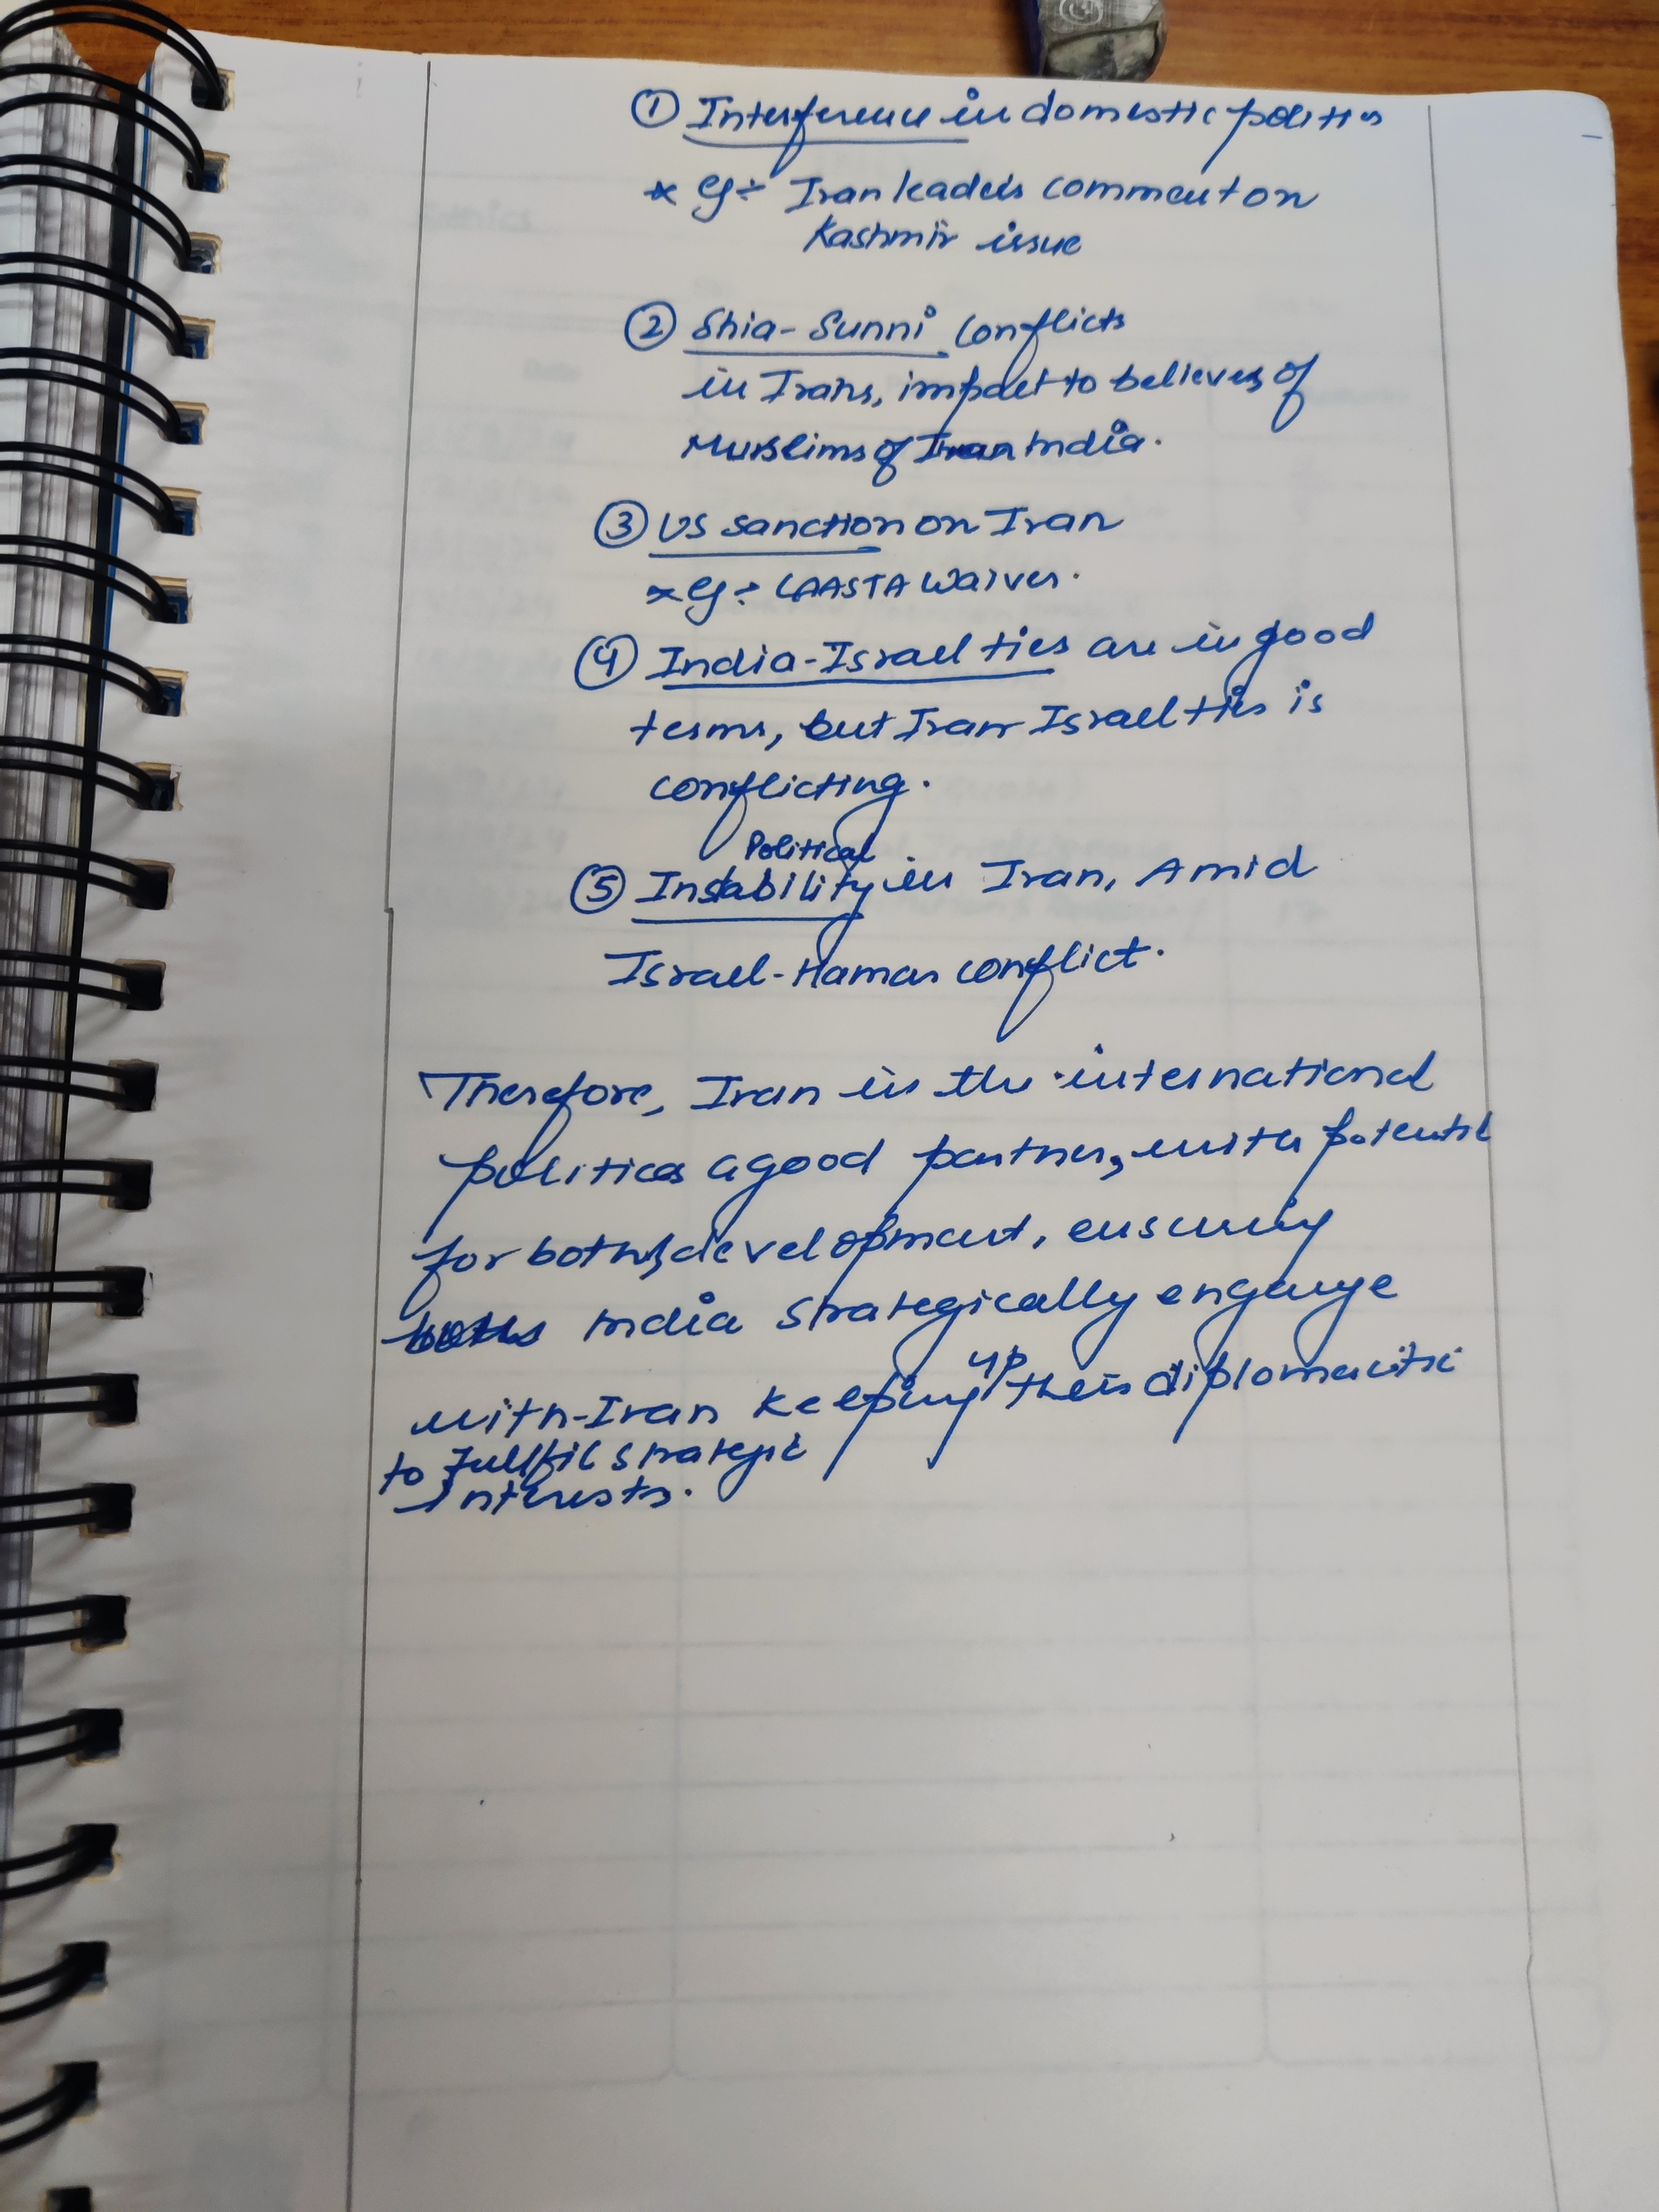 ① Interference in domestic politics
* eg ÷ Iran leaders comment on
Kashmir issue
② Shia-Sunni conflicts
in Irans, impact to believes of
Muslims of Iran India.
③ US sanction on Iran
* eg ÷ CAASTA waiver.
④ India-Israel ties are in good
terms, but Iran Israel ties is
conflicting.
Political
⑤ Instability in Iran, Amid
Israel-Hamas conflict.
Therefore, Iran in the international
politics a good partner, with potential
for both development, ensuring
India strategically engauge
with-Iran keeping up their
to Fullfil strategic
interests.